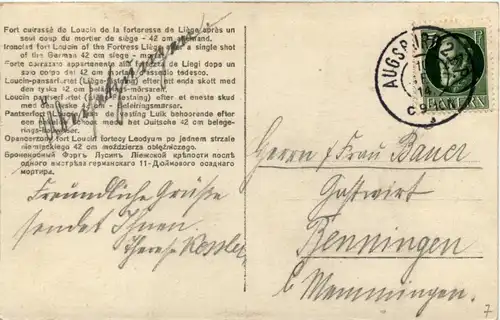 Fort cuirassé de Loucin de la forteresse de Liège après un
seul coup du mortier de siège - 42 cm - allemand.
Ironclad fort Loucin of the Fortress Liège after a single shot
of the German 42 cm siege - mortar.
Forte corazzato appartenente alla fortezza di Liegi dopo un
solo colpo del 42 cm mortaio tedesco.
Loucin-pansarfortet (Liège) efter ett enda skott med
den tyska 42 cm belägrings-mörsaren.
Loucin panserfortet (Liège fæstning) efter et eneste skud
med den tyske 42 cm belejringsmörser.
Pantserfort der vesting Luik behoorende efter
schot met het Duitsche 42 cm beleg-
Opancerzony fort Loucin fortecy Leodyum po jednem strzale
niemieckiego 42 cm moździerza oblężniczego.
Броненосный Фортъ Лусинъ Ліежской крѣпости послѣ
одного выстрѣла германскаго 11-Дюймоваго осаднаго
мортира.
Freundliche Grüße
sendet Ihnen
Therese Kessler
AUGSBURG 2
BAYERN
Herrn & Frau Bauer
Gastwirt
Benningen
b. Memmingen.
7